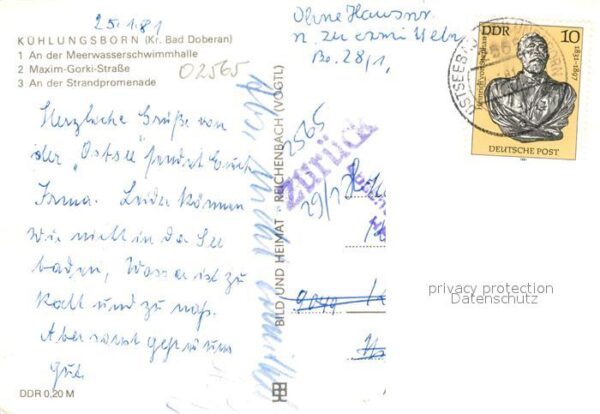 25.1.81
KÜHLUNGSBORN (Kr. Bad Doberan)
1 An der Meerwasserschwimmhalle
2 Maxim-Gorki-Straße
3 An der Strandpromenade
02565
Herzliche Grüße von
der "Ostsee" sendet Euch
Irma. Leider können
wir nicht in der See
baden, Wasser ist zu
kalt und zu naß.
Aber sonst geht es uns
gut.
DDR 0,20 M
BILD UND HEIMAT REICHENBACH (VOGTL)
Ohne Hausnr.
n. zu ermitteln
28/1,
2565
Zurück
29/1
DDR
10
Heinrich von Stephan
1831-1897
DEUTSCHE POST
1981
OSTSEEBAD
privacy protection
Datenschutz